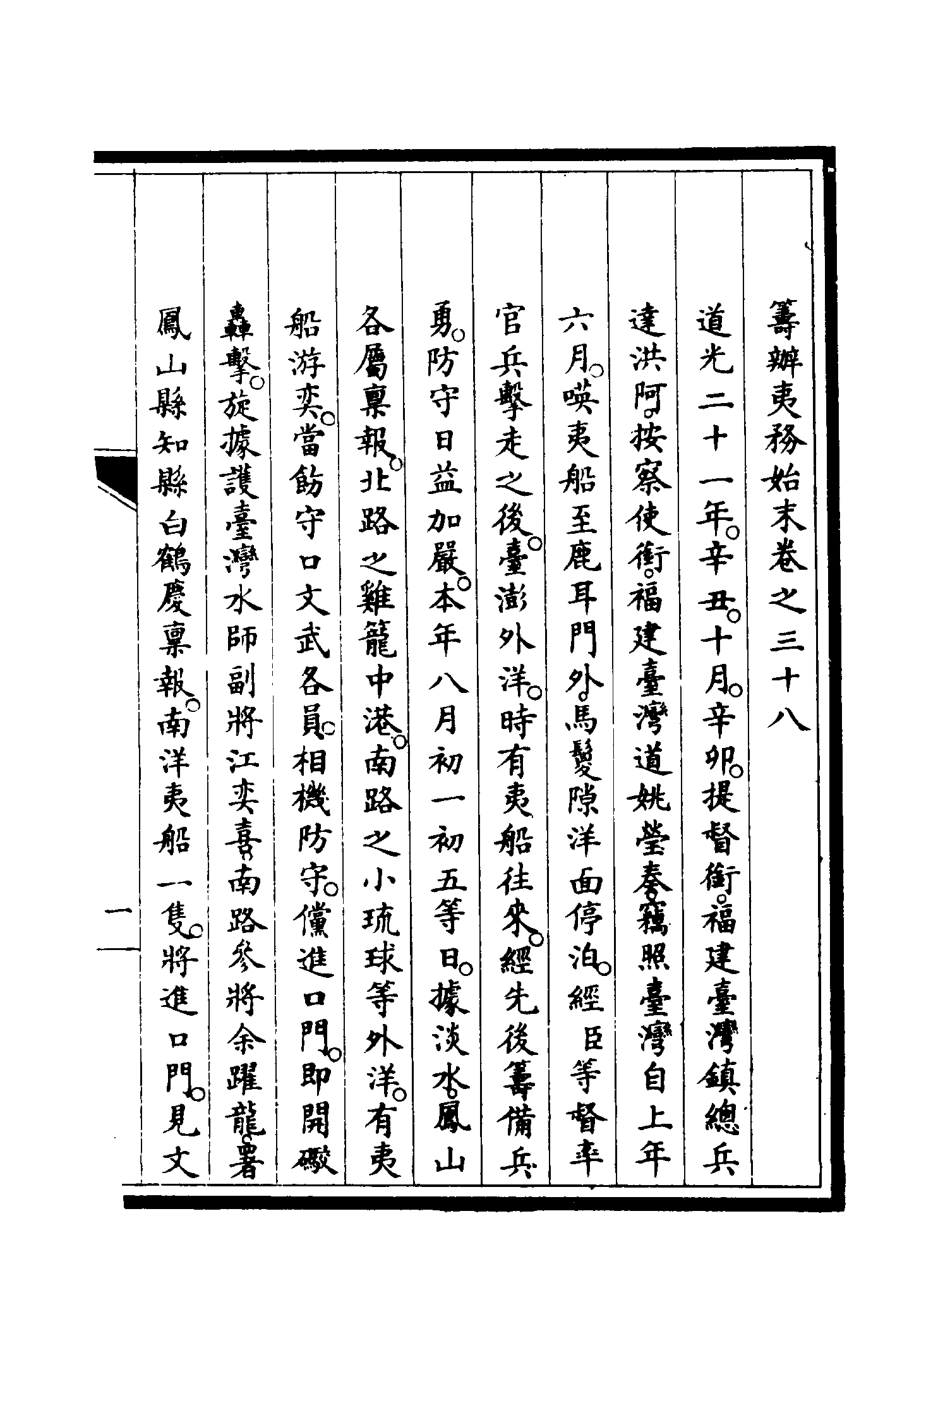 籌辦夷務始末卷之三十八
道光二十一年。辛丑。十月。辛卯。提督銜。福建臺灣鎮總兵
達洪阿。按察使銜。福建臺灣道姚瑩奏。竊照臺灣自上年
六月。㗸夷船至鹿耳門外。馬鬃隙洋面停泊。經臣等督率
官兵擊走之後。臺澎外洋。時有夷船往來。經先後籌備兵
勇。防守日益加嚴。本年八月初一初五等日。據淡水。鳳山
各屬稟報。北路之雞籠中港。南路之小琉球等外洋。有夷
船游奕。當飭守口文武各員。相機防守。儻進口門。即開礮
轟擊。旋據護臺灣水師副將江奕喜。南路參將余躍龍。署
鳳山縣知縣白鶴慶稟報。南洋夷船一隻。將進口門。見文
一